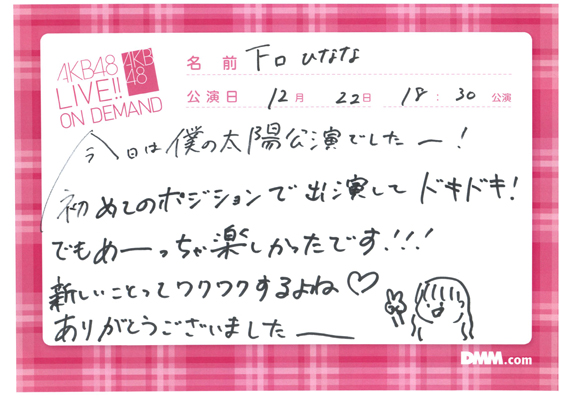 AKB48
LIVE!!
ON DEMAND
AKB
48
名前 下口ひなな
公演日 12月 22日 18:30 公演
今日は僕の太陽公演でしたー!
初めてのポジションで出演してドキドキ!
でもめーっちゃ楽しかったです!!!
新しいことってワクワクするよね♡
ありがとうございましたー
DMM.com